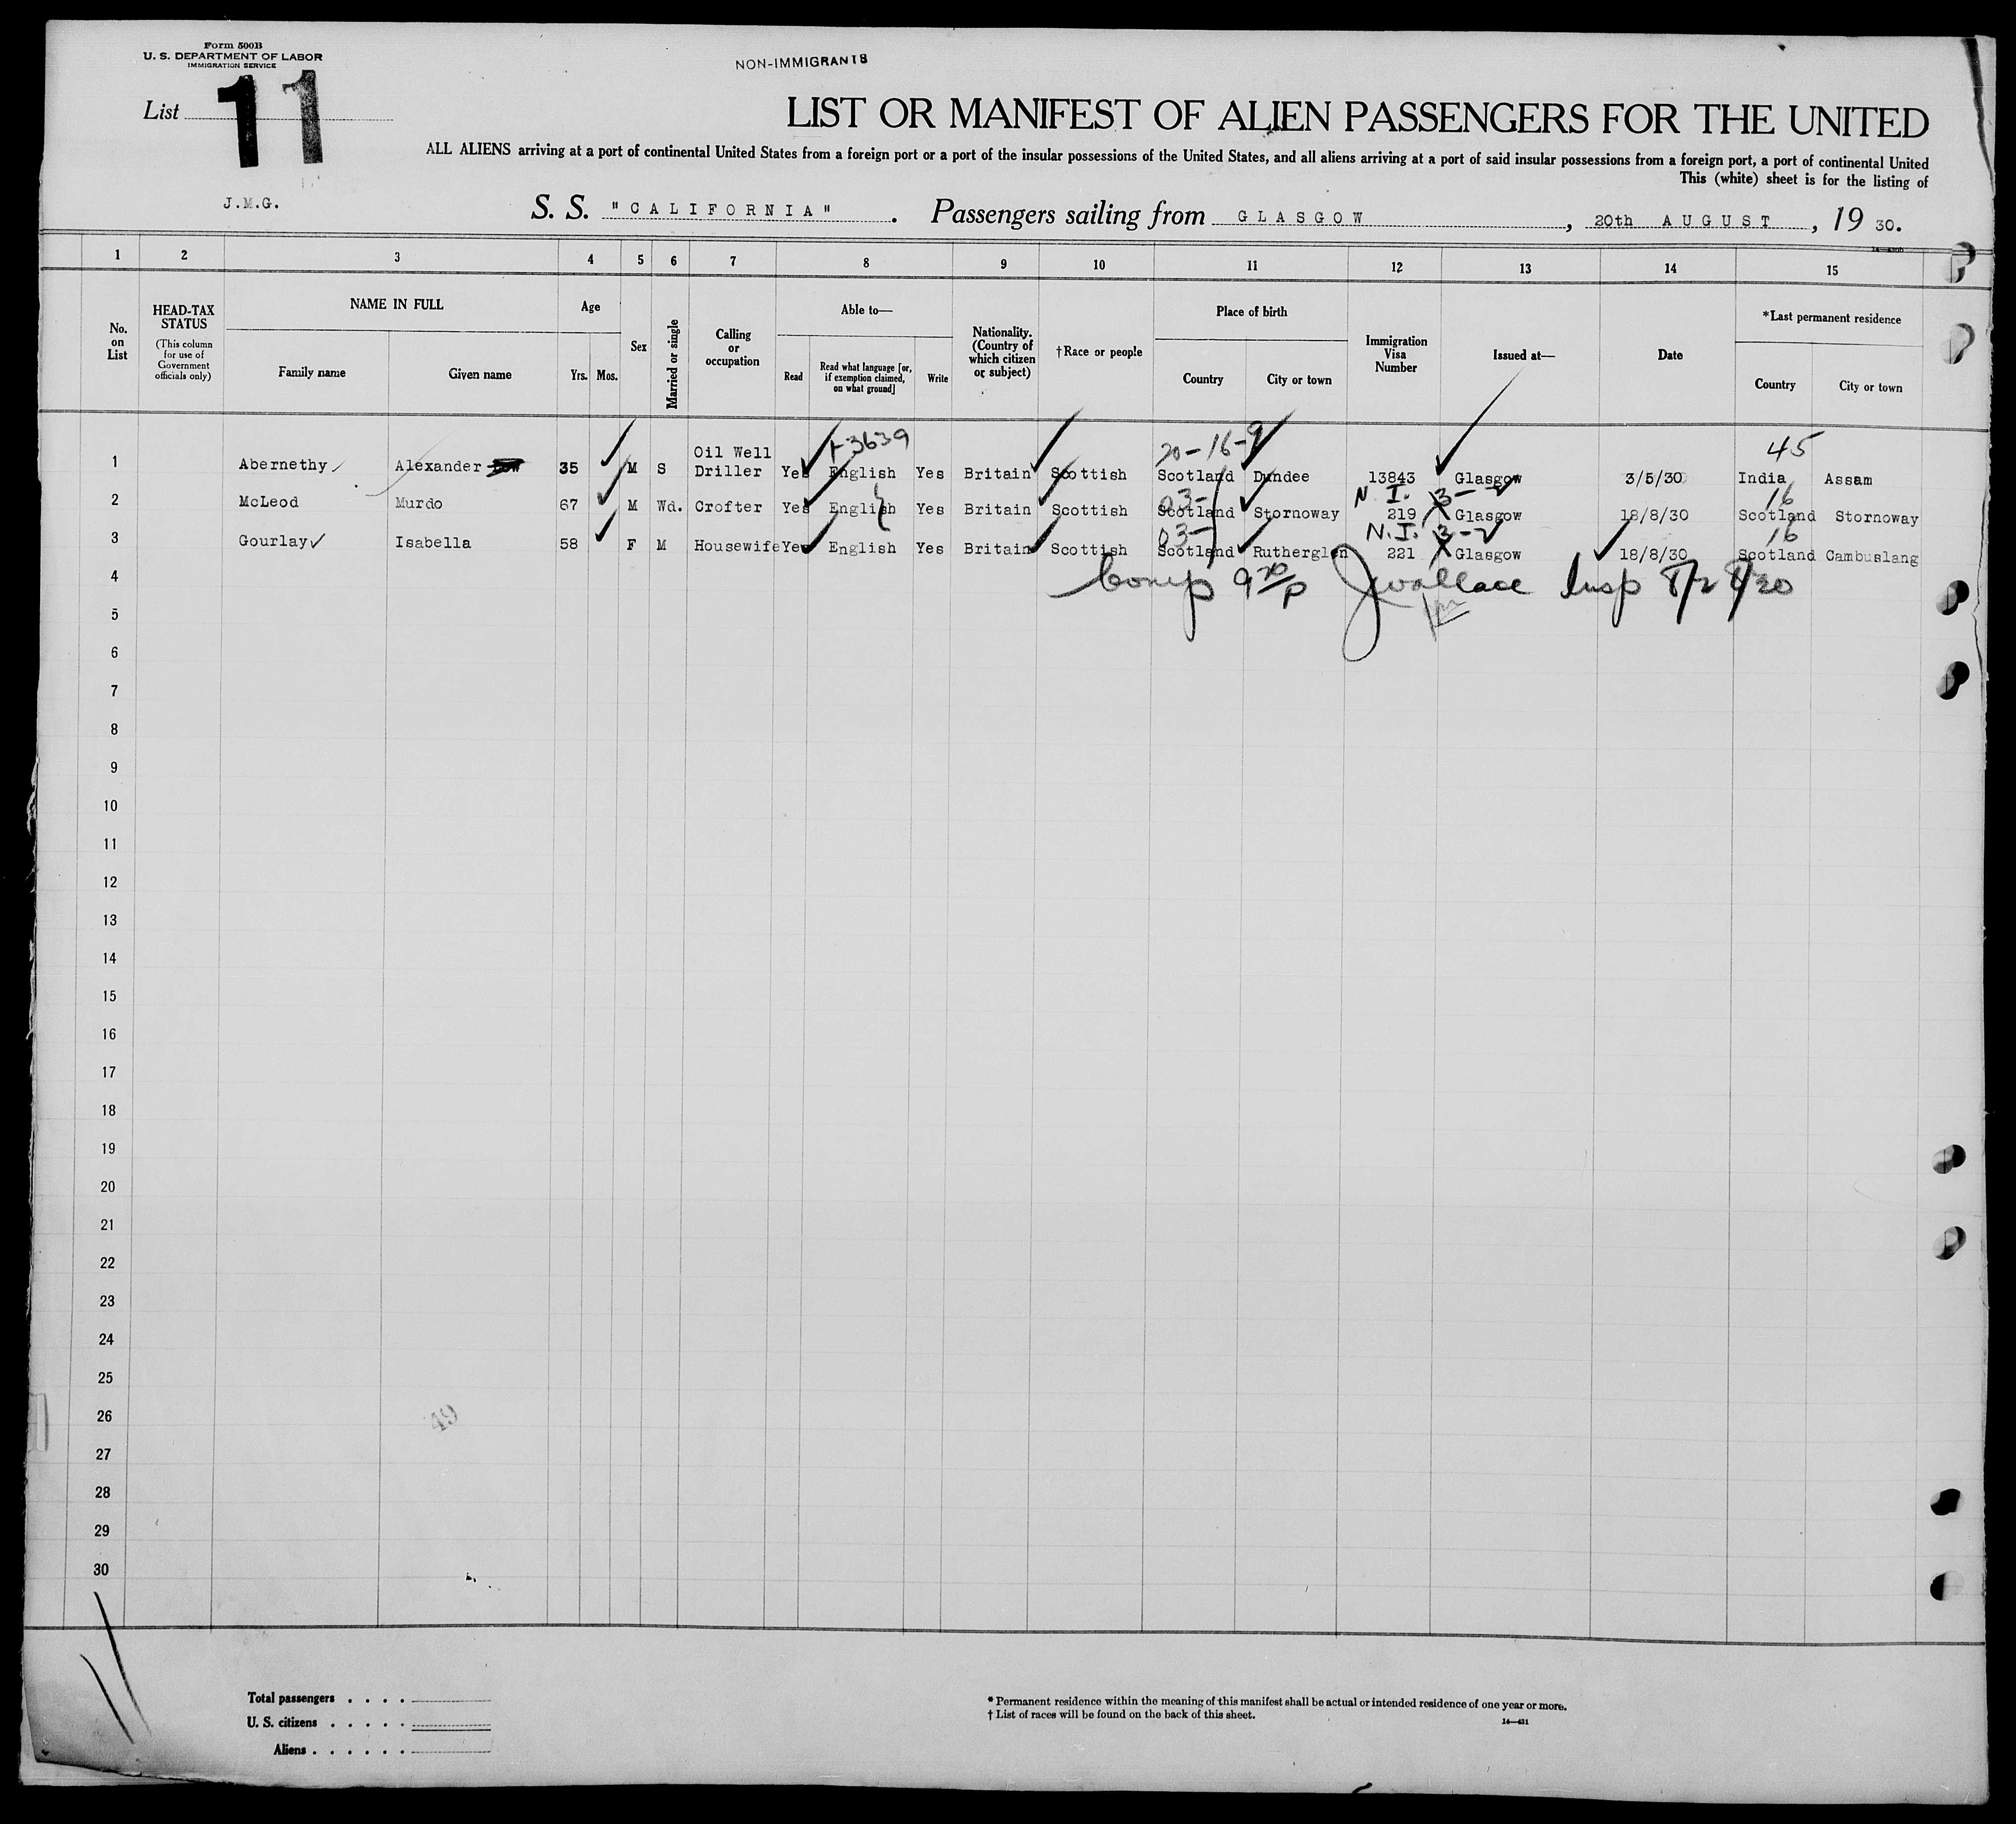 Form 500B
U. S. DEPARTMENT OF LABOR
IMMIGRATION SERVICE
NON-IMMIGRANTS
List 11
LIST OR MANIFEST OF ALIEN PASSENGERS FOR THE UNITED
ALL ALIENS arriving at a port of continental United States from a foreign port or a port of the insular possessions of the United States, and all aliens arriving at a port of said insular possessions from a foreign port, a port of continental United
This (white) sheet is for the listing of
J.M.G.
S. S. "CALIFORNIA". Passengers sailing from GLASGOW, 20th AUGUST, 19 30.
1 2 3 4 5 6 7 8 9 10 11 12 13 14 15
No. on List
HEAD-TAX STATUS
(This column for use of Government officials only)
NAME IN FULL
Family name Given name
Age
Yrs. Mos.
Sex
Married or single
Calling or occupation
Able to—
Read
Read what language [or, if exemption claimed, on what ground]
Write
Nationality. (Country of which citizen or subject)
†Race or people
Place of birth
Country City or town
Immigration Visa Number
Issued at—
Date
*Last permanent residence
Country City or town
3639 20-16-9 45
1 Abernethy Alexander 35 M S Oil Well Driller Yes English Yes Britain Scottish Scotland Dundee 13843 Glasgow 3/5/30 India Assam
03- N. I. 3- 16
2 McLeod Murdo 67 M Wd. Crofter Yes English Yes Britain Scottish Scotland Stornoway 219 Glasgow 18/8/30 Scotland Stornoway
03- N.I. 3- 16
3 Gourlay Isabella 58 F M Housewife Yes English Yes Britain Scottish Scotland Rutherglen 221 Glasgow 18/8/30 Scotland Cambuslang
Comp J Wallace Insp
4
5
6
7
8
9
10
11
12
13
14
15
16
17
18
19
20
21
22
23
24
25
26
49
27
28
29
30
Total passengers . . . .
U. S. citizens . . . . .
Aliens . . . . . .
* Permanent residence within the meaning of this manifest shall be actual or intended residence of one year or more.
† List of races will be found on the back of this sheet.
14—431